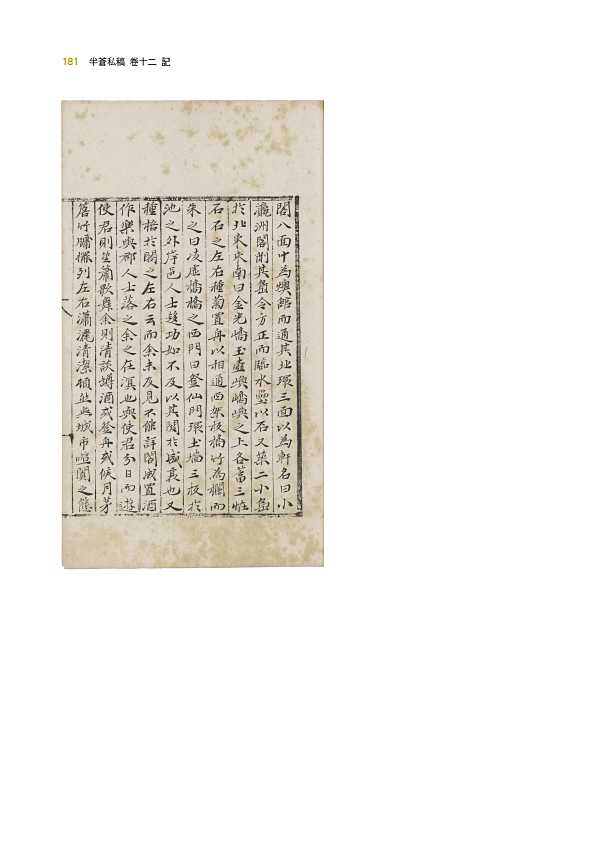 181 半蒼私稿 卷十二 記
閣八面十為奧館而通其北環三面以為軒名曰小
瀛洲閣削其島令方正而臨水壘以石又築二小島
於北東東南曰金光嶠玉壺嶼嶠嶼之上各蓄三怪
石石之左右種菊置舟以相通西架板橋竹為欄而
朱之曰凌虛橋橋之西門曰登仙門環土墻三板於
池之外岸邑人士趍功如不及以其関於盛衰也又
種榕於閣之左右云而余未及見不能詳閣成置酒
作樂與郡人士落之余之在溟也與使君分日而遊
使君則笙簫歌舞余則清談罇酒或登舟或候月茅
簷竹牖列左右瀟灑清潔頓無城市喧闐之態